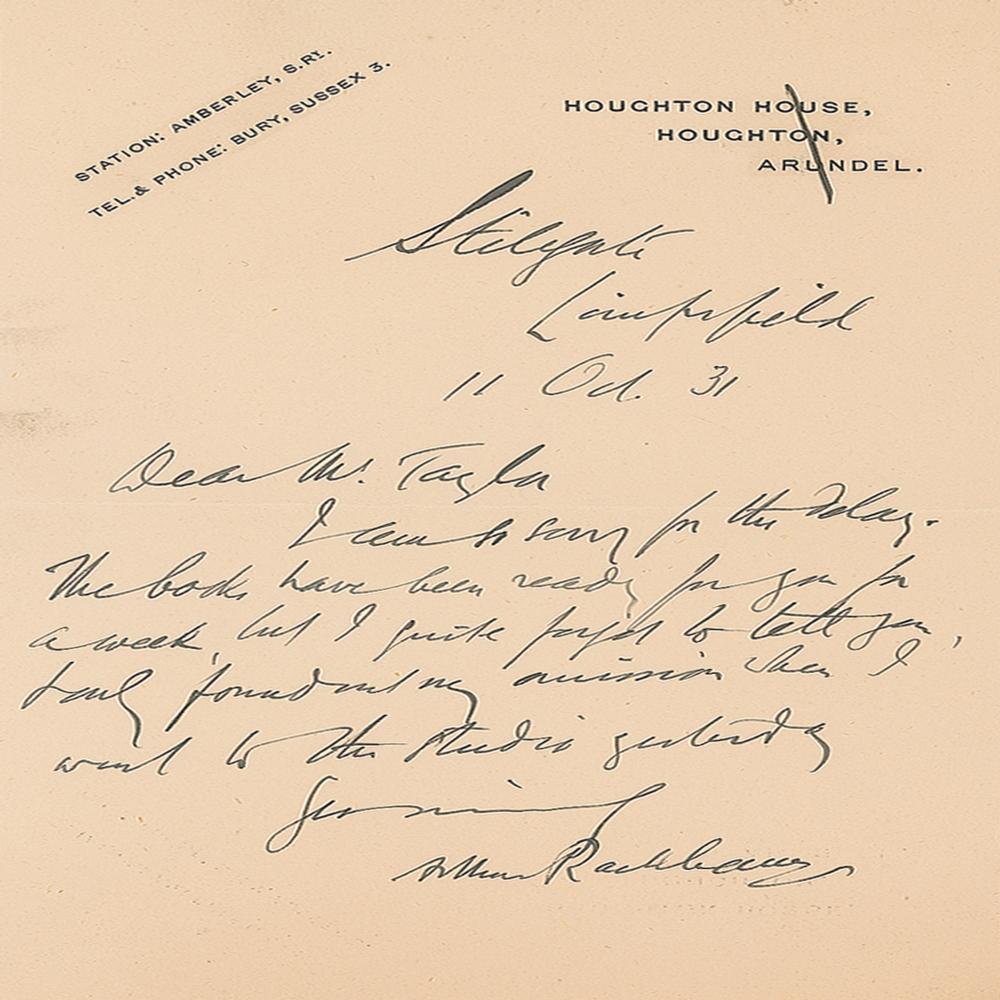 STATION: AMBERLEY, S.RY.
TEL. & PHONE: BURY, SUSSEX 3.
HOUGHTON HOUSE,
HOUGHTON,
ARUNDEL.
Stilegate
Limpsfield
11 Oct. 31
Dear Mr. Taylor
I am so sorry for the delay.
The books have been ready for you for
a week, but I quite forgot to tell you,
& only found out my omission when I
went to the studio yesterday
Yrs sincerely
Arthur Rackham